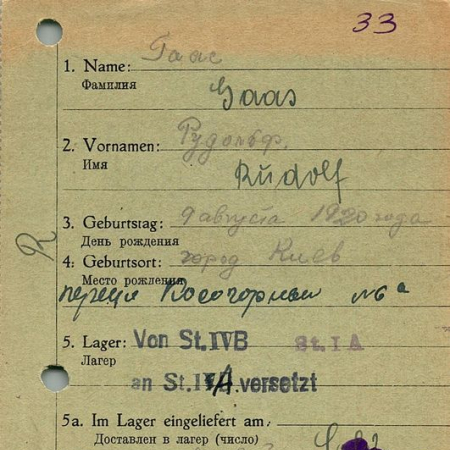 33
1. Name: Гаас
Фамилия
Gaas
2. Vornamen: Рудольф.
Имя
Rudolf
3. Geburtstag: 9 августа 1920 года
День рождения
R
4. Geburtsort: город Киев
Место рождения
Косогорный №6а
5. Lager: Von St.IVB St. I A
Лагер
an St. A. versetzt
5a. Im Lager eingeliefert am
Доставлен в лагер (число)